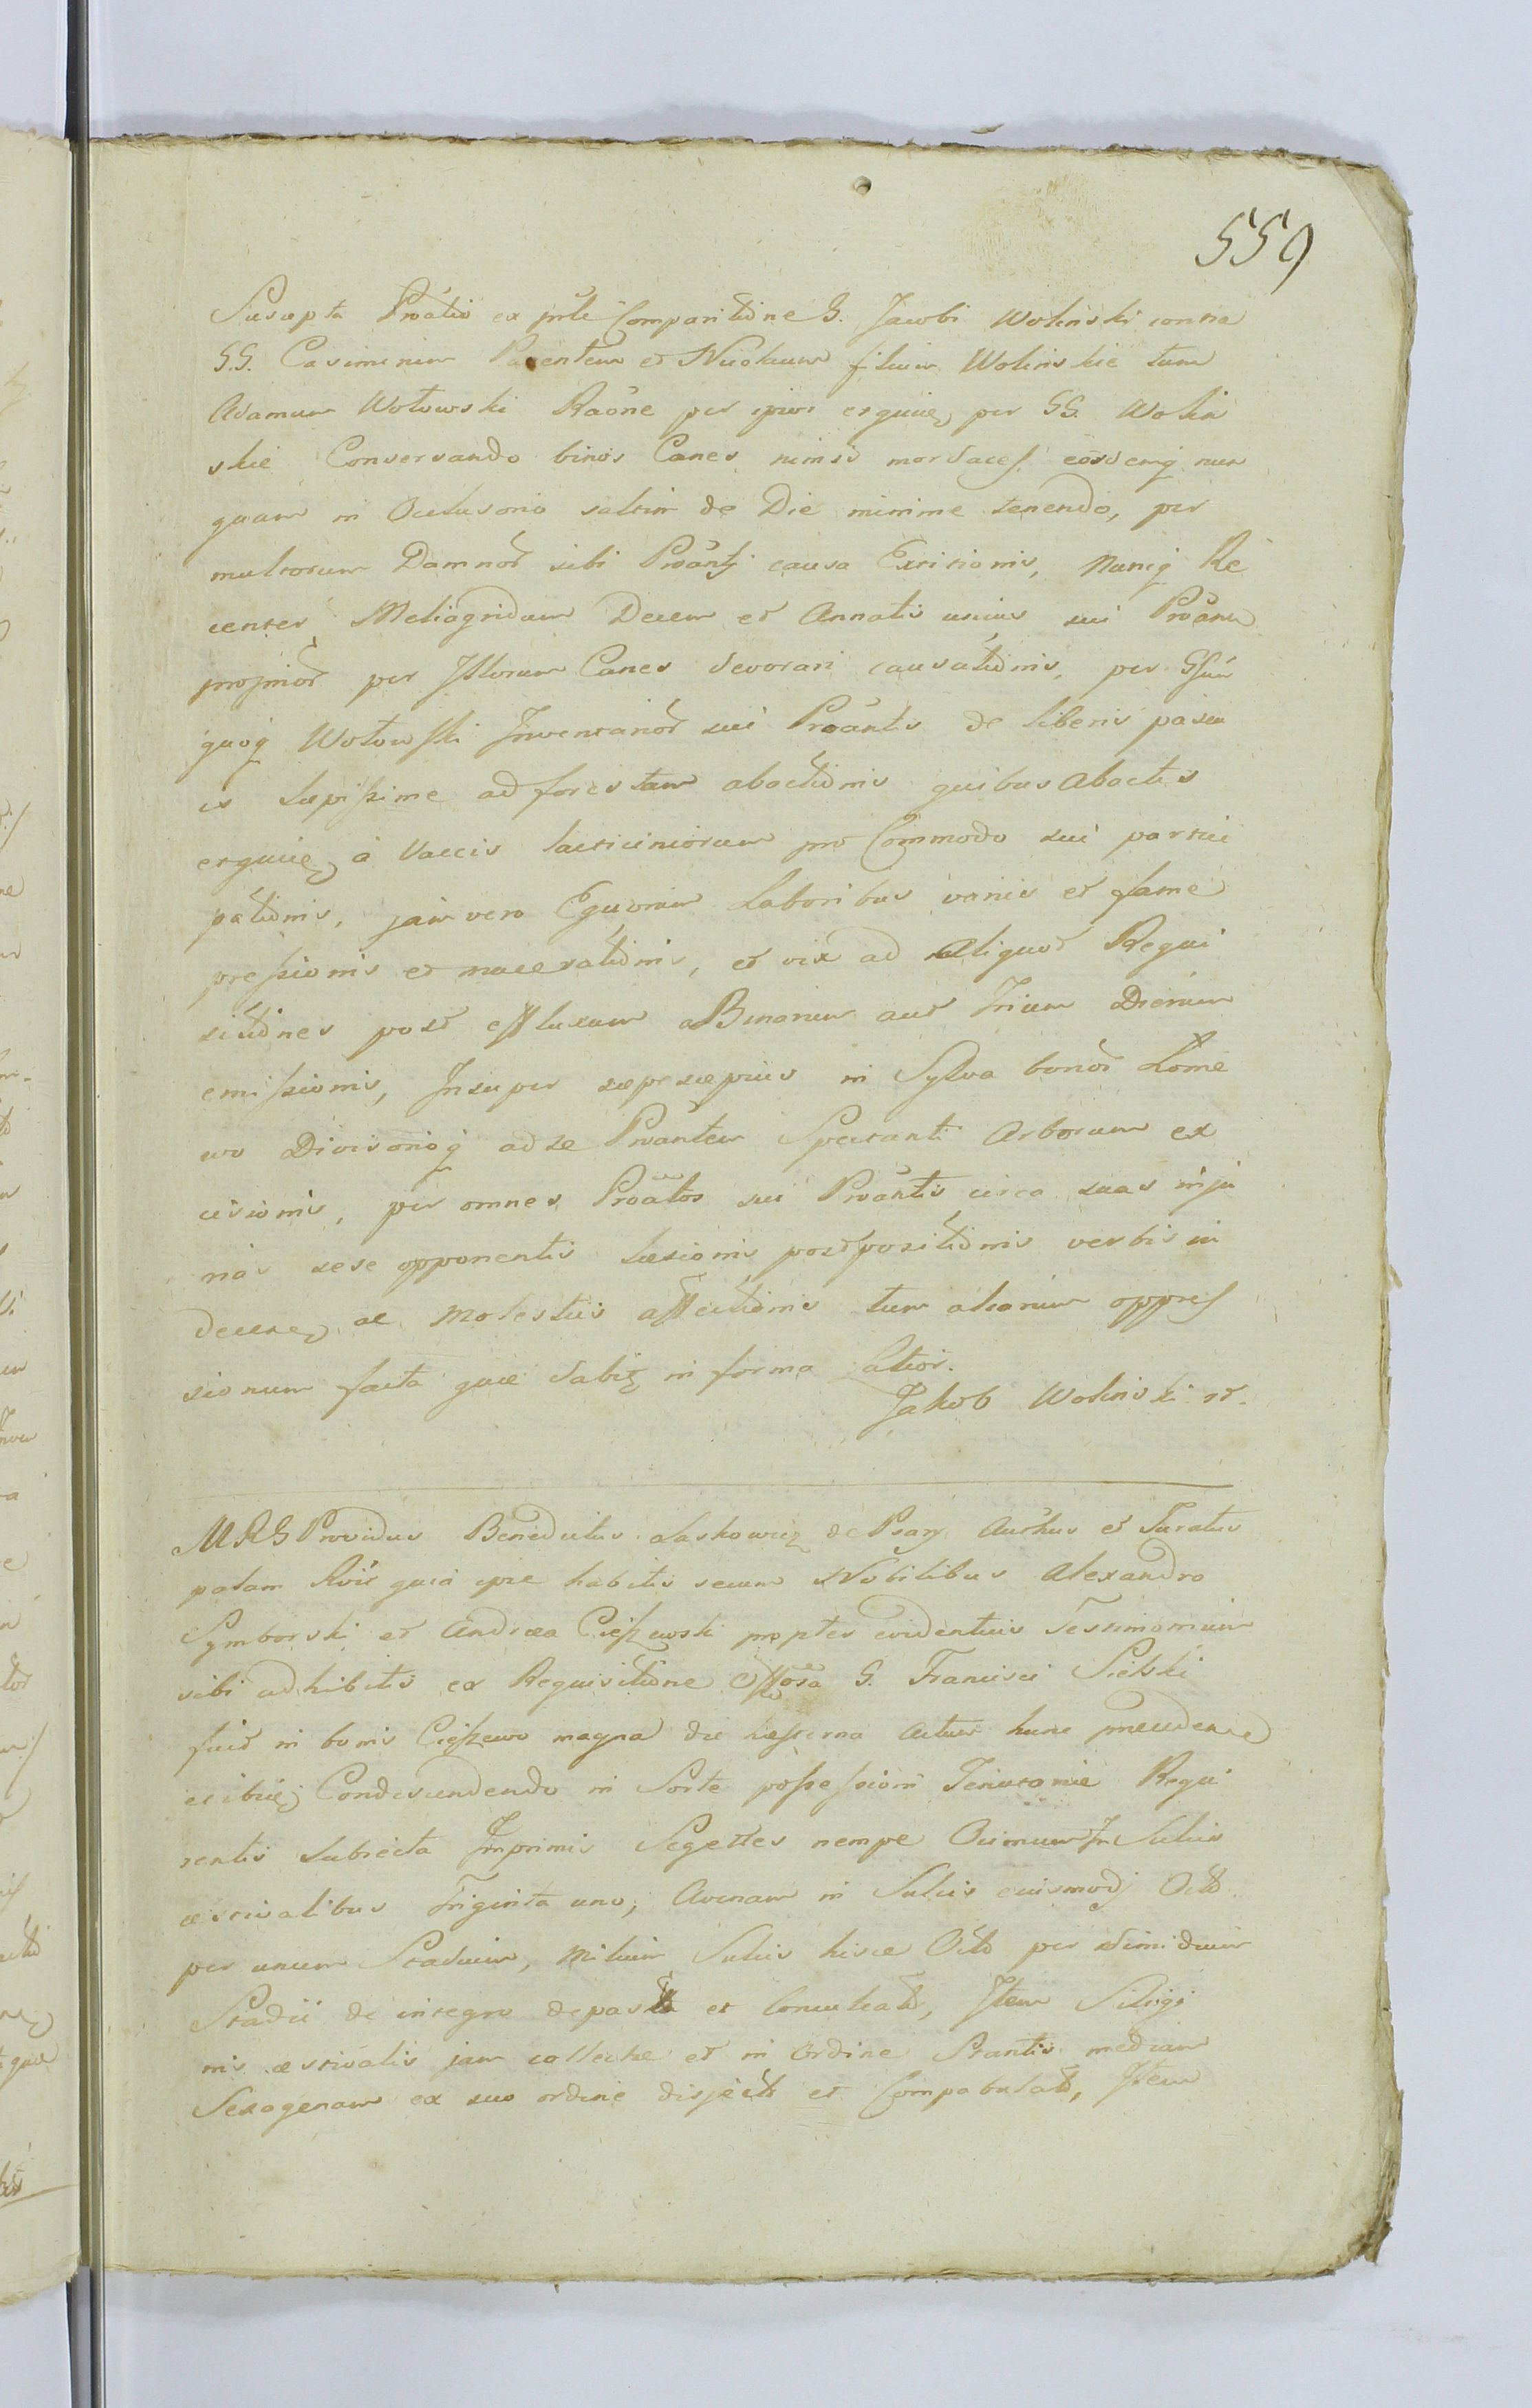 559
Suscepta Proatio ex pnti Comparitione G. Jacobi Wolinski contra
G.G. Casimirum Parentem et Nicolaum filium Wolinskie tum
Adamum Wołowski Raone per ipsos erquae per GG. Wolin
skie Conservando binos Canes nimis mordaces eosdemq nun
quam in Oclusorio saltim de Die minime tenendo, per
multorum Damnor sibi Proanti causa Exitionis, Nuncq Re
center Meliagridum Decem et Annatis unius sui Proantis
propriior per Illorum Canes devorari causationis, per Gsum
quoq Wołowski Inventarior sui Proantis de liberis pascu
is sæpissime ad forestam abactionis quibus Abactis
erquae à Vaccis lacticiniorum pro Commodo sui partici
pationis, jam vero Equorum Laboribus variis et fame
pressionis et macerationis, et vix ad Aliquot Requi
sitiones post effluxum Binarum aut Trium Dierum
emissionis, Insuper sæpesæpius in Sylva bonor Łome
wo Divisorioq ad se Proantem Spectanti Arborum ex
cisionis, per omnes Proatos sui Proantis circa suas inju
rias sese opponentis læsionis postpositionis verbis in
decere ac Molestiis affectionis tum aliorum oppres
sionum facta quæ dabit in forma latior.
Jakób Wolinski
MRG Providus Benedictus Laskowicz de Psary Authus et Juratus
palam Rvit quia ipse habitis secum Nobilibus Alexandro
Symborski et Andræa Cieszewski propter evidentius Testimonium
sibi adhibitis ex Requisitione G. Francisci Sielski
fuit in bonis Cieszewo magna die hæsterna Actum hunc præcedente
ibiq Condescendendo in Sorte possessioni Tenutoriæ Requi
rentis subjecta Inprimis Segettes nempe Ocimum In Sulcis
æstivalibus Triginta uno, Avenam in Sulcis ejusmodj Octo
per unum Stadium, Milium Sulcis hisce Octo per dimidium
Stadii de integro depasta et Conculcato, Item Siligi
nis æstivalis jam collectæ et in Ordine Stantis mediam
Sexagenam ex suo ordine disjecto et Compabulato, Item